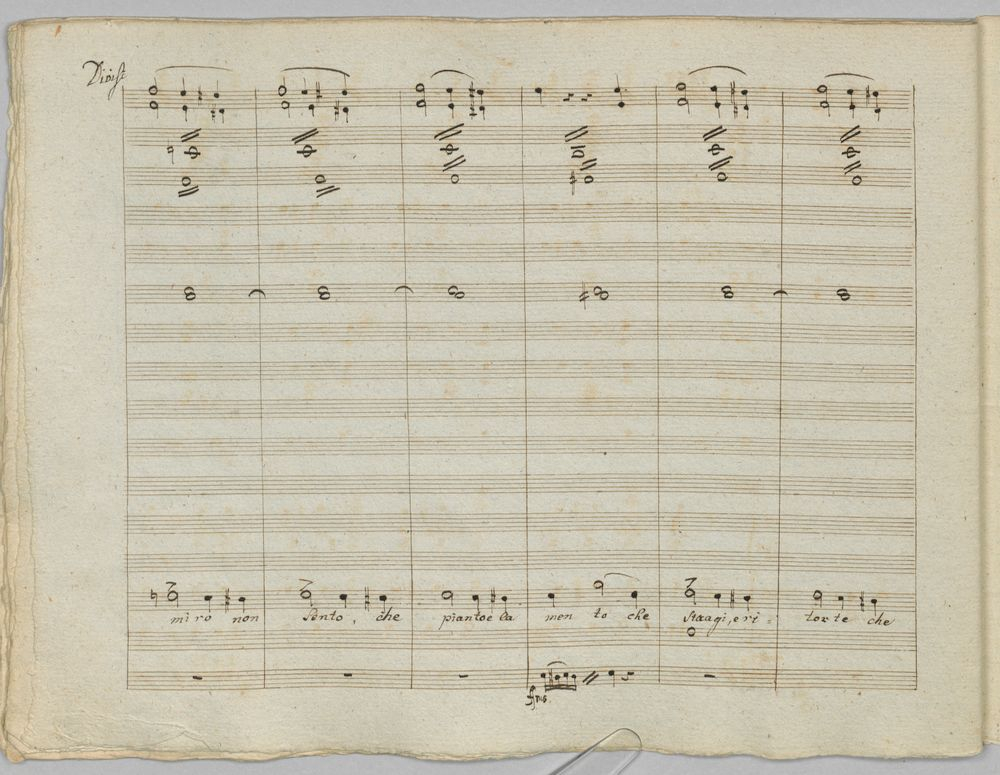 Divisi
miro non sento, che pianto e la mento che Stragi, e ri= torte che